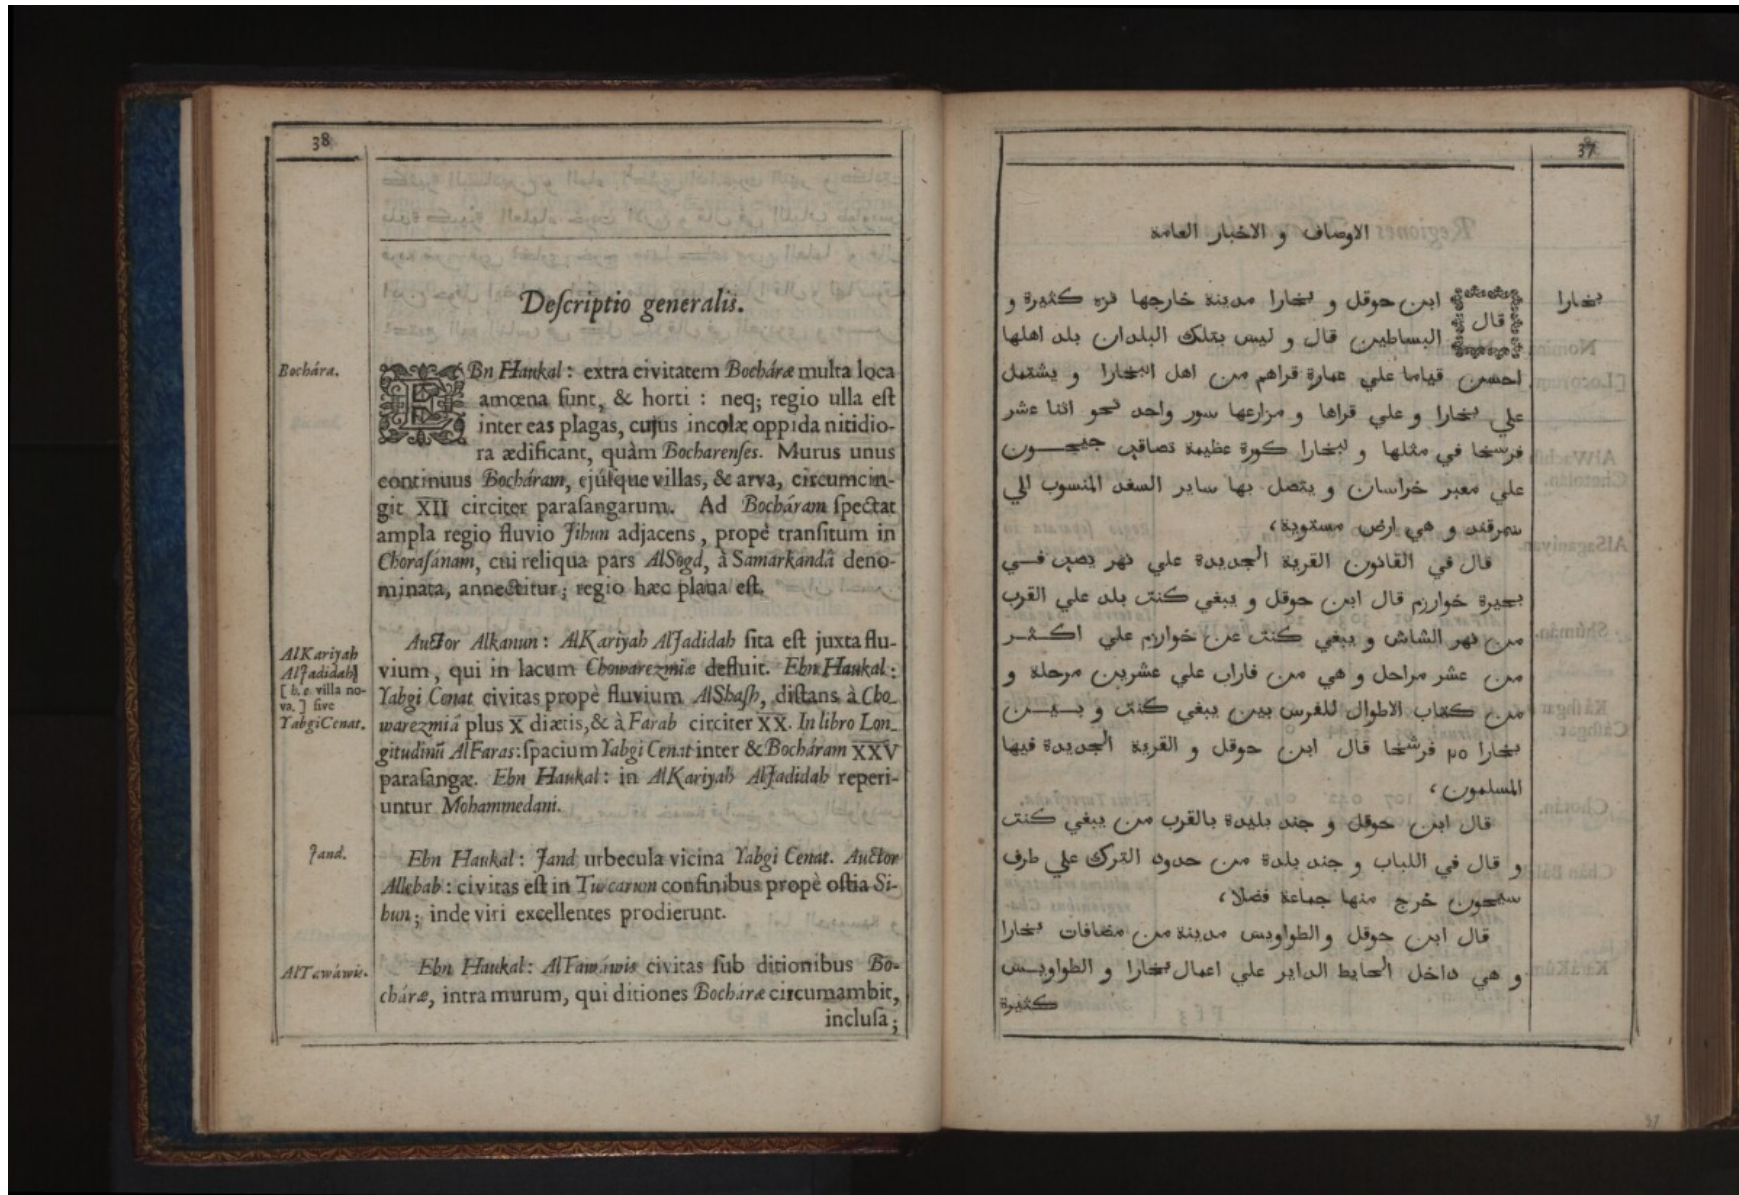 38
Descriptio generalis.
Bochára.
EBn Haukal: extra civitatem Bocháræ multa loca
amœna sunt, & horti : neq; regio ulla est
inter eas plagas, cujus incolæ oppida nitidio-
ra ædificant, quàm Bocharenses. Murus unus
continuus Bocháram, ejúsque villas, & arva, circumcin-
git XII circiter parasangarum. Ad Bocháram spectat
ampla regio fluvio Jihun adjacens, propè transitum in
Chorasánam, cui reliqua pars AlSogd, à Samarkandâ deno-
minata, annectitur; regio hæc plana est.
AlKariyah
AlJadidah,
[h. e. villa no-
va.] sive
YabgiCenat.
Auctor Alkanun: AlKariyah AlJadidah sita est juxta flu-
vium, qui in lacum Chowarezmiæ defluit. Ebn Haukal:
Yabgi Cenat civitas propè fluvium AlShash, distans à Cho-
warezmiâ plus X diætis, & à Farab circiter XX. In libro Lon-
gitudinũ AlFaras: spacium Yabgi Cenat inter & Bocháram XXV
parasangæ. Ebn Haukal: in AlKariyah AlJadidah reperi-
untur Mohammedani.
Jand.
Ebn Haukal: Jand urbecula vicina Yabgi Cenat. Auctor
Allebab: civitas est in Turcarum confinibus propè ostia Si-
hun; inde viri excellentes prodierunt.
AlTawáwis.
Ebn Haukal: AlTawáwis civitas sub ditionibus Bo-
cháræ, intra murum, qui ditiones Bocharæ circumambit,
inclusa;
37
الاوصاف و الاخبار العامة
بخارا
قال ابن حوقل و بخارا مدينة خارجها نزه كثيرة و
البساطين قال و ليس بتلك البلدان بلد اهلها
احسن قياما علي عمارة قراهم من اهل البخارا و يشتمل
علي بخارا و علي قراها و مزارعها سور واحد نحو اثنا عشر
فرسخا في مثلها و لبخارا كورة عظيمة تصاقب جيحون
علي معبر خراسان و يتصل بها ساير السغد المنسوب الي
سمرقند و هي ارض مستوية،
قال في القانون القرية الجديدة علي نهر يصب في
بحيرة خوارزم قال ابن حوقل و يبغي كنت بلد علي القرب
من نهر الشاش و يبغي كنت عن خوارزم علي اكثر
من عشر مراحل و هي من فاراب علي عشرين مرحلة و
من كتاب الاطوال للفرس بين يبغي كنت و بين
بخارا ٢٥ فرسخا قال ابن حوقل و القرية الجديدة فيها
المسلمون،
قال ابن حوقل و جند بليدة بالقرب من يبغي كنت
و قال في اللباب و جند بلدة من حدود الترك علي طرف
سيحون خرج منها جماعة فضلا،
قال ابن حوقل و الطواويس مدينة من مضافات بخارا
و هي داخل الحايط الداير علي اعمال بخارا و الطواويس
كثيرة